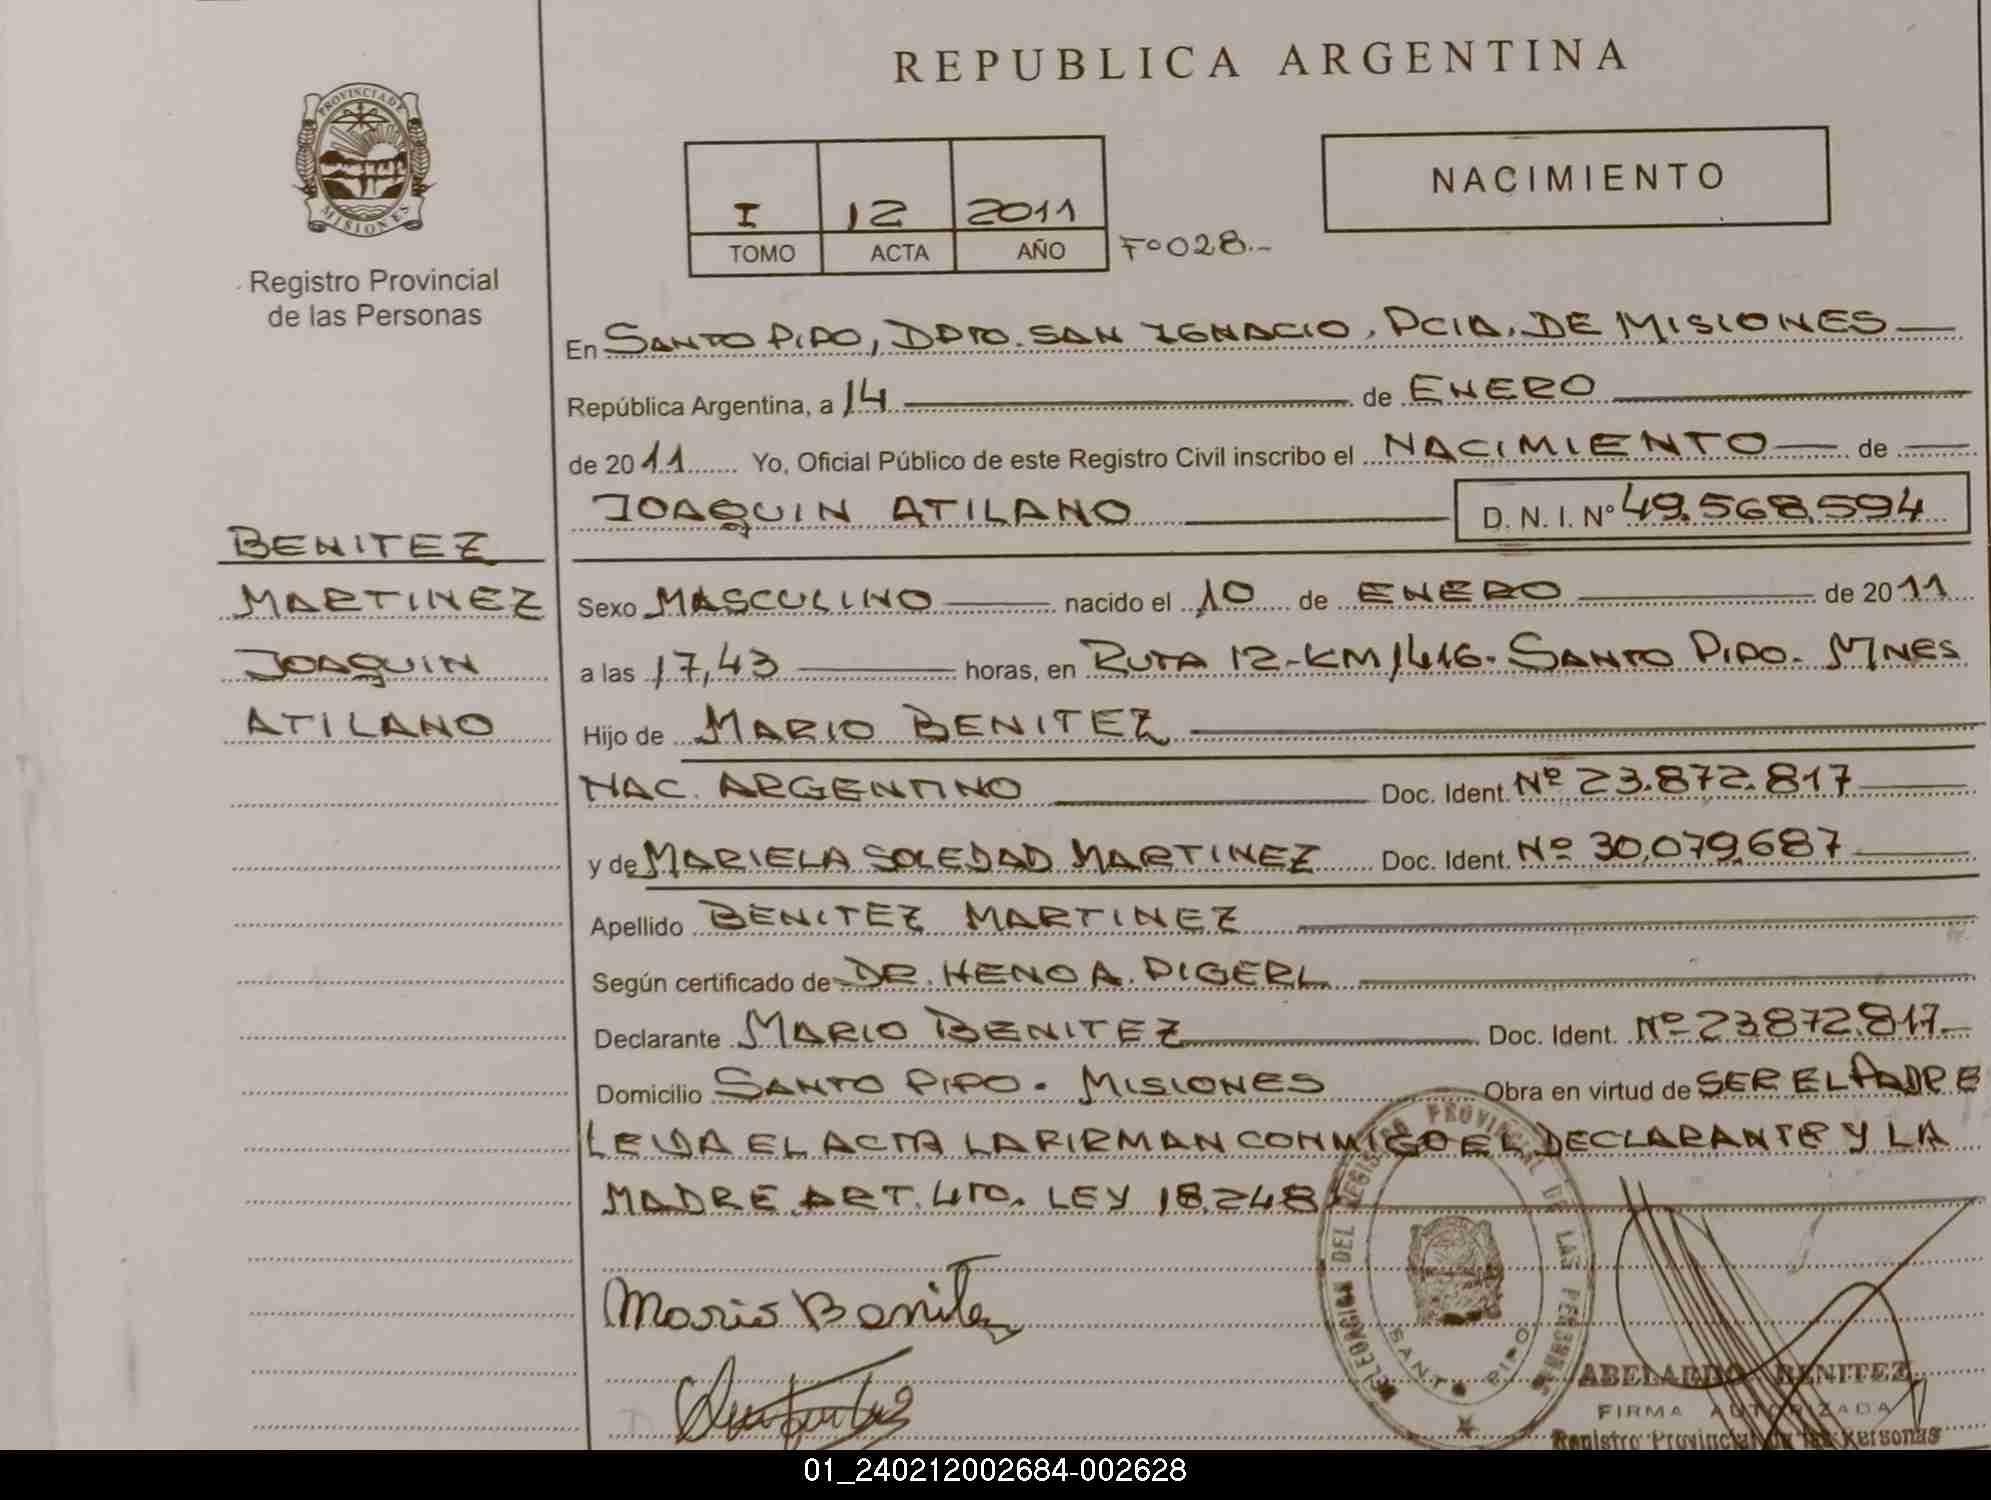 REPUBLICA ARGENTINA
PROVINCIA DE
MISIONES
Registro Provincial
de las Personas
NACIMIENTO
I 12 2011
TOMO ACTA AÑO Fº 028.-
En SANTO PIPO, DPTO. SAN IGNACIO, PCIA. DE MISIONES
República Argentina, a 14 de ENERO
de 2011 Yo, Oficial Público de este Registro Civil inscribo el NACIMIENTO de
JOAQUIN ATILANO D. N. I. Nº 49.568.594
BENITEZ
MARTINEZ
JOAQUIN
ATILANO
Sexo MASCULINO nacido el 10 de ENERO de 2011
a las 17,43 horas, en RUTA 12-KM 1416. SANTO PIPO. MNES
Hijo de MARIO BENITEZ
NAC. ARGENTINO Doc. Ident. Nº 23.872.817
y de MARIELA SOLEDAD MARTINEZ Doc. Ident. Nº 30.079.687
Apellido BENITEZ MARTINEZ
Según certificado de DR. HENO A. PIGERL
Declarante MARIO BENITEZ Doc. Ident. Nº 23.872.817
Domicilio SANTO PIPO. MISIONES Obra en virtud de SER EL PADRE
LEIDA EL ACTA LA FIRMAN CONMIGO EL DECLARANTE Y LA
MADRE ART. 4TO. LEY 18.248
Mario Benitez
DELEGACION DEL REGISTRO PROVINCIAL DE LAS PERSONAS
SANTO PIPO
ABELARDO BENITEZ
FIRMA AUTORIZADA
Registro Provincial de las Personas
01_240212002684-002628